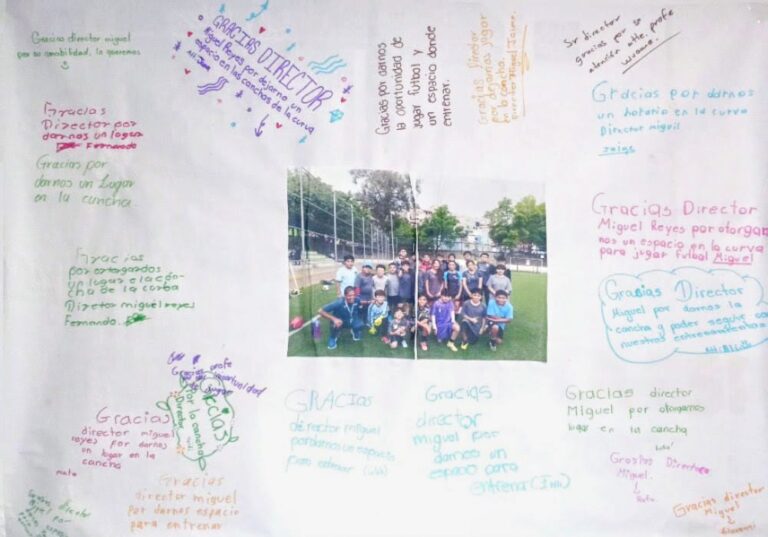 Gracias director miguel
por su amabilidad, lo queremos
GRACIAS DIRECTOR
Miguel Reyes por dejarno, un
espacio en las canchas de la curva
Gracias por darnos
la oportunidad de
jugar futbol y
un espacio donde
entrenar.
Gracias Director
por dejarnos jugar
en la cancha.
Sr director
gracias por su
atención atte. profe
Gracias por darnos
un horario en la curva
Director miguel
Gracias
Director por
darnos un lugar
Fernando
Gracias por
darnos un Lugar
en la cancha
Gracias Director
Miguel Reyes por otorgar
nos un espacio en la curva
para jugar futbal Miguel
Gracias
por otorgardos
un lugar e la con
cha de la curba
Diretor miguel reyes
Fernando.
Gracias Director
Miguel por darnos la
cancha y poder seguir con
nuestros entrenamientos
profe
oportunidad
Gracias
por la cancha
Director
Gracias
director miguel
reyes por darnos
un lugar en la
cancha
GRACIAS
director miguel
por darnos un espacio
para entrenar
Gracias
director
miguel por
darnos un
espacio para
entrenar
Gracias director
Miguel por otorgarnos
lugar en la cancha
Gracias Director
Miguel.
Gracias
director miguel
por darnos espacio
para entrenar
Gracias director
Miguel
Giovanni